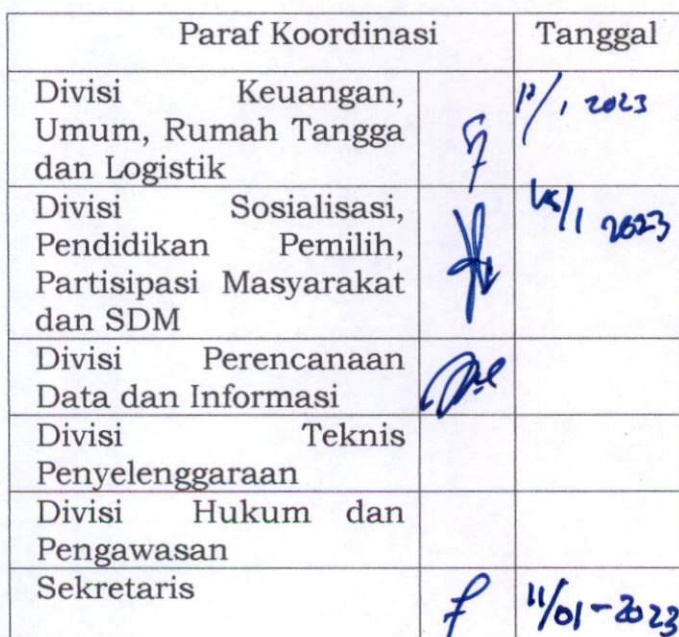 Paraf Koordinasi Tanggal
Divisi Keuangan,
Umum, Rumah Tangga
dan Logistik
/1 2023
Divisi Sosialisasi,
Pendidikan Pemilih,
Partisipasi Masyarakat
dan SDM
/1 2023
Divisi Perencanaan
Data dan Informasi
Divisi Teknis
Penyelenggaraan
Divisi Hukum dan
Pengawasan
Sekretaris 11/01-2023